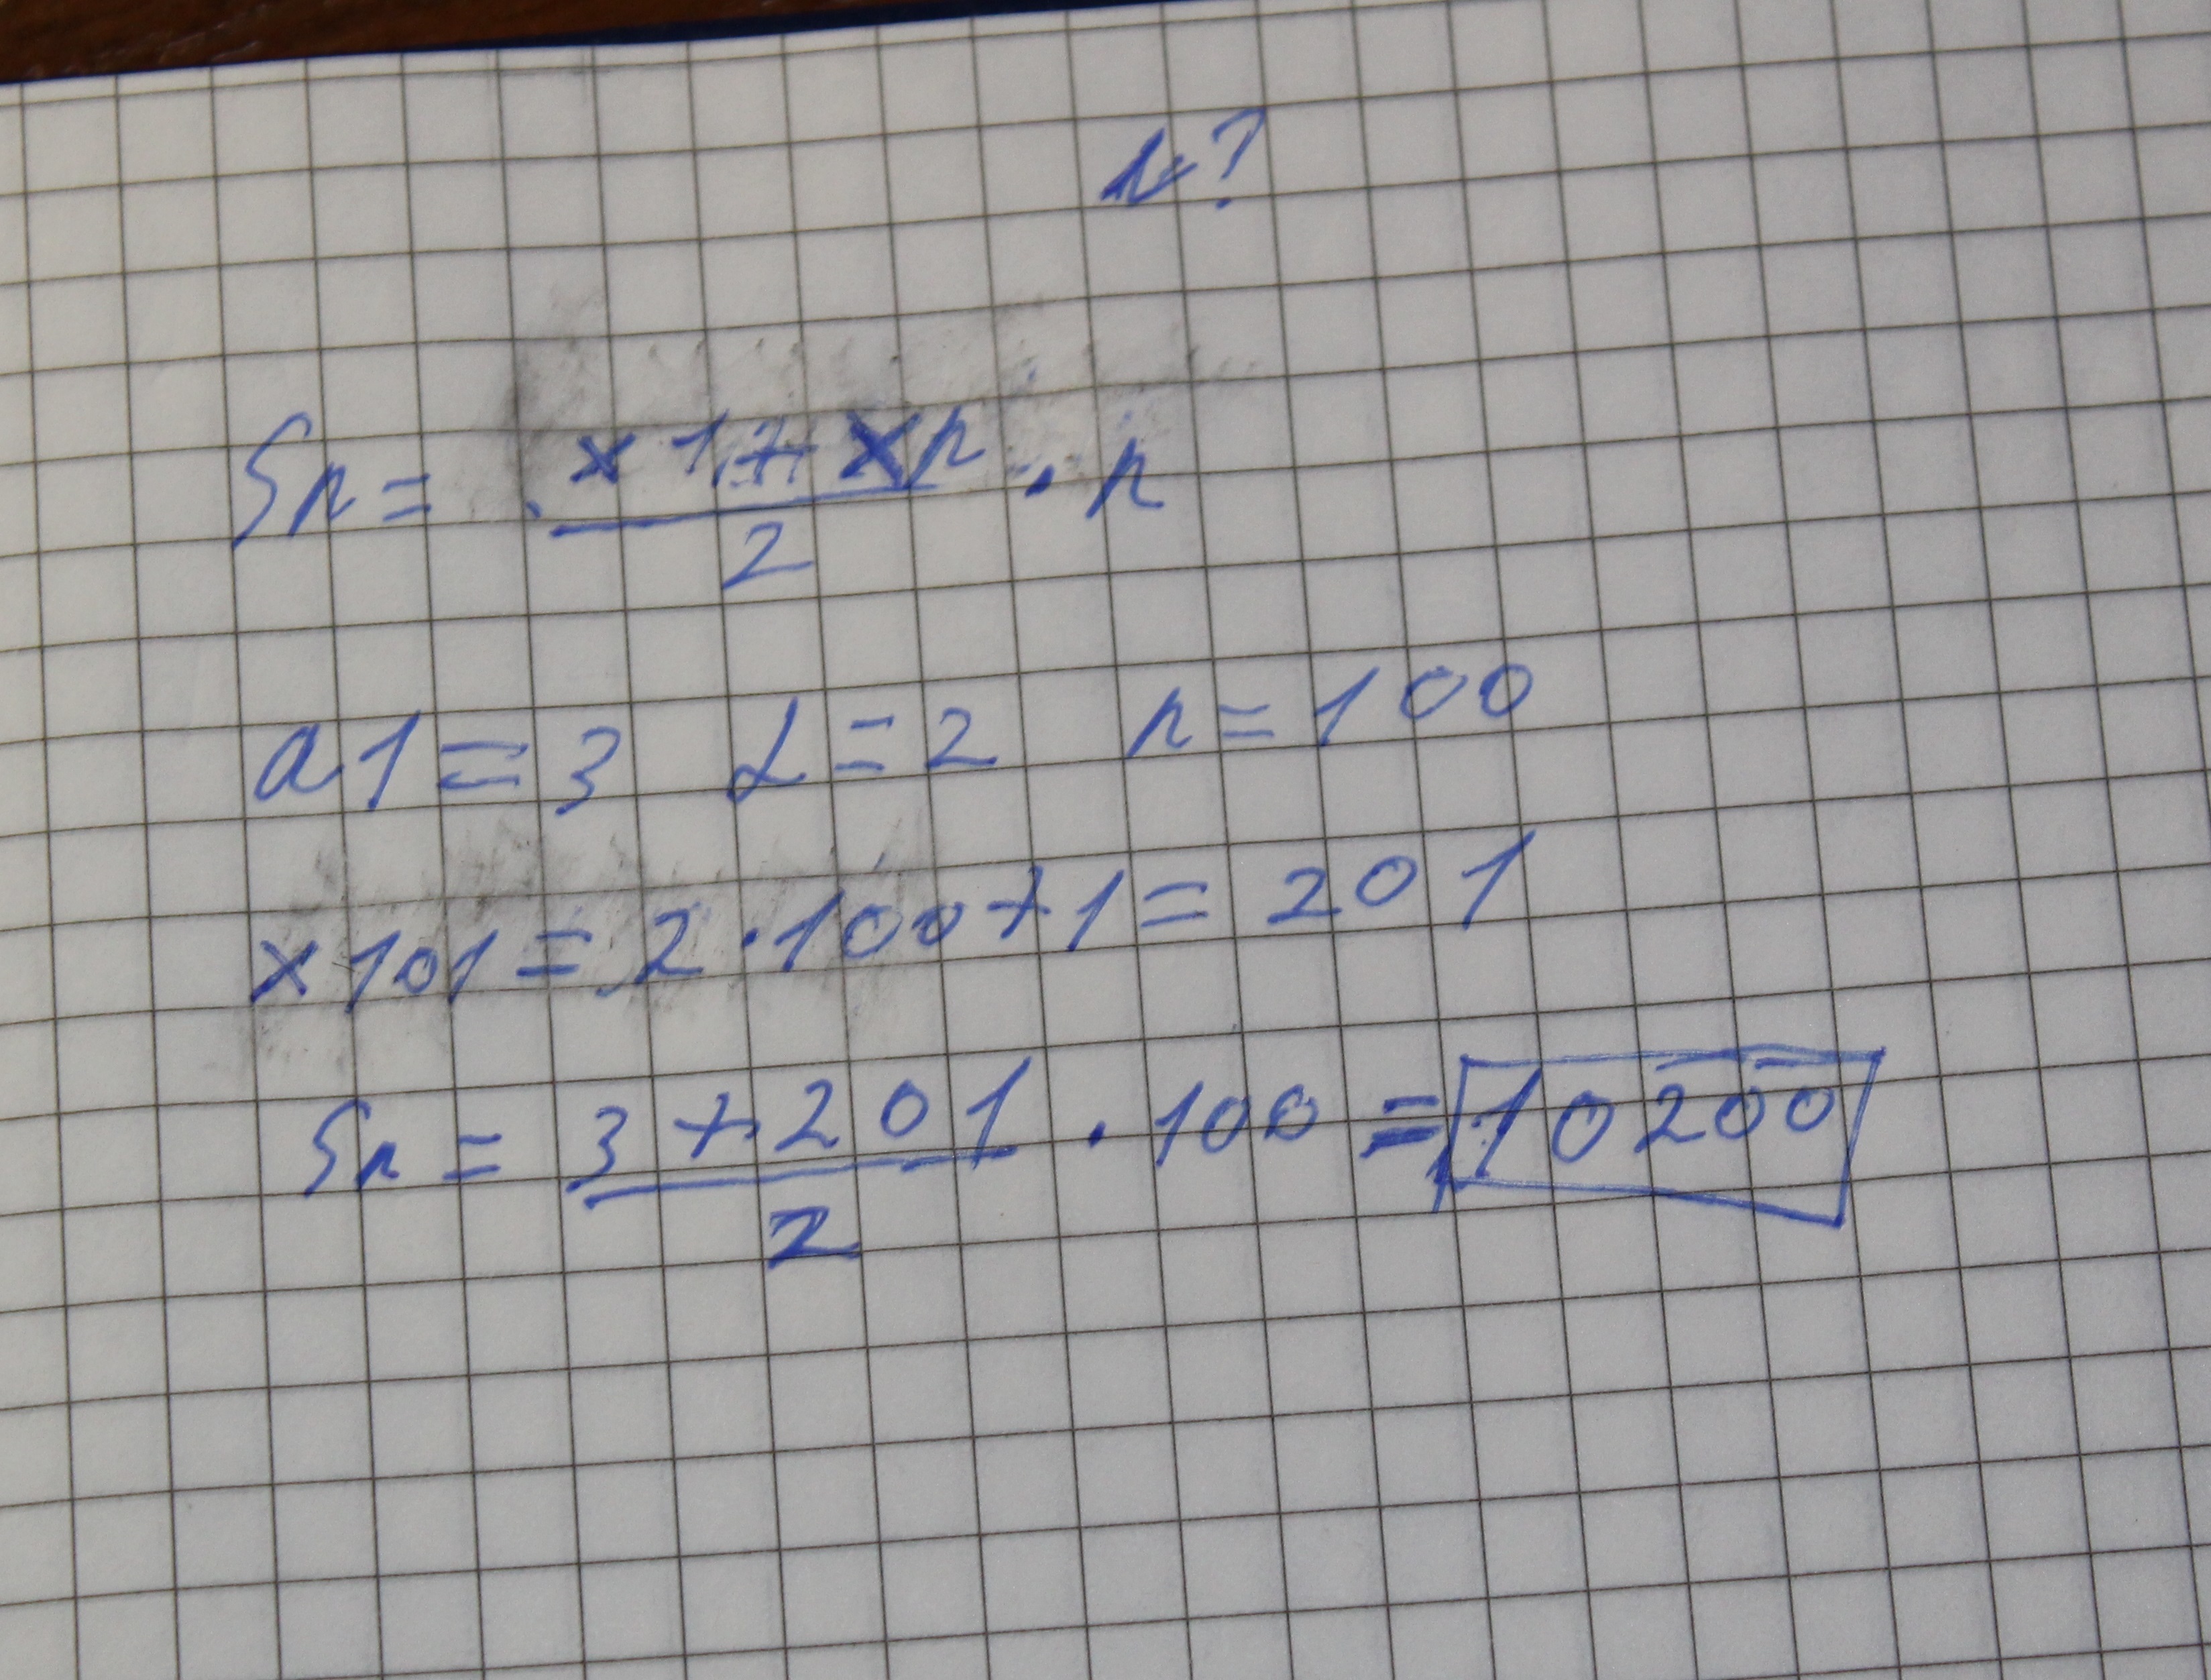 n=?
Sn = (x1 + xn)/2 · n
a1 = 3 d = 2 n = 100
x101 = 2 · 100 + 1 = 201
Sn = (3 + 201)/2 · 100 = 10200